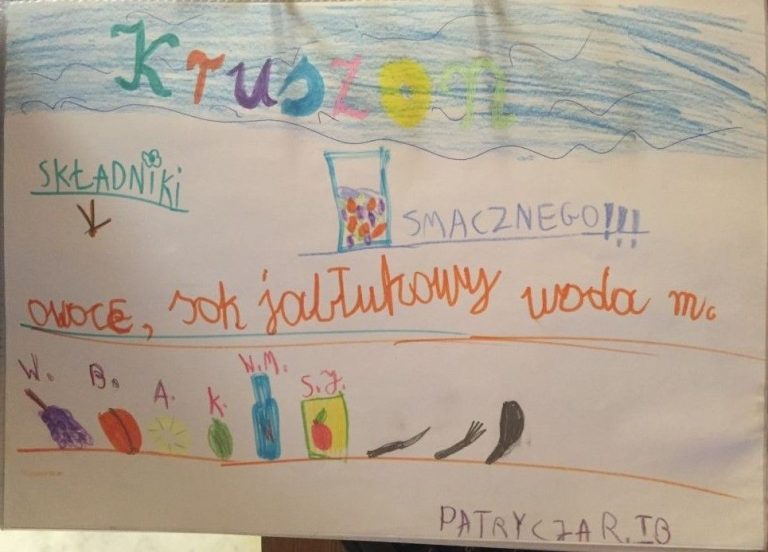 Kruszon
SKŁADNiKi
SMACZNEGO!!!
owoce, sok jabłukowy woda m.
W. B. A. K. W.M. S.J.
PATRYCZAR.IB